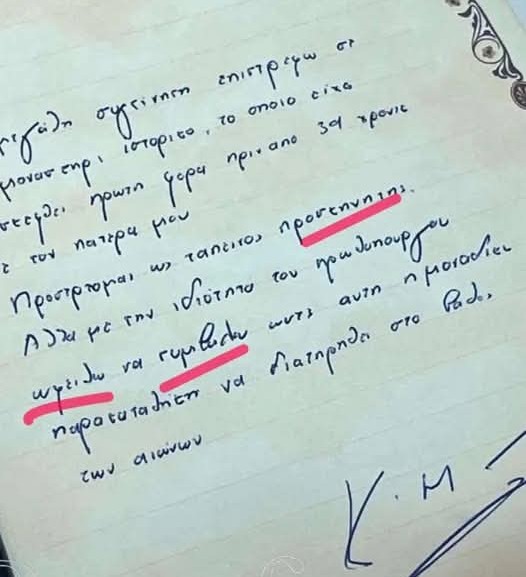 μεγάλη συγκίνηση επιστρέφω σε
μοναστήρι ιστορικό, το οποίο είχα
επισκεφθεί πρώτη φορά πριν από 39 χρόνια
με τον πατέρα μου
Προσέρχομαι ως ταπεινός προσκηνητής.
Αλλά με την ιδιότητα του πρωθυπουργού
ωφείλω να συμβάλω ώστε αυτή η μοναδική
παρακαταθήκη να διατηρηθεί στο βάθος
των αιώνων
Κ. Μ